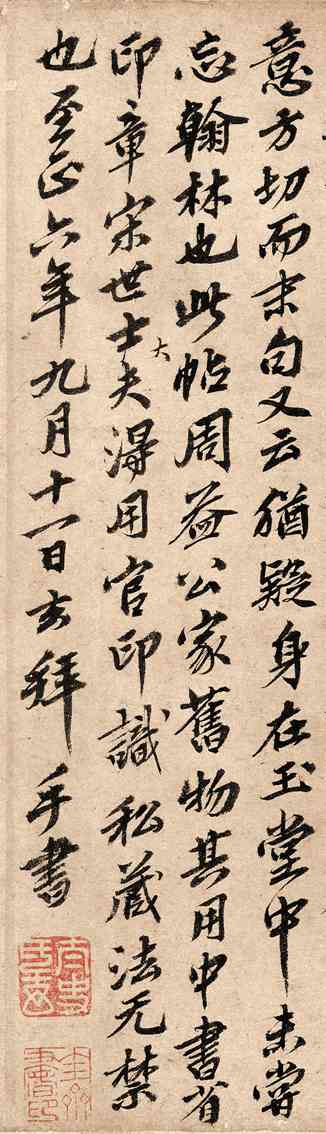 意方切而末句又云猶疑身在玉堂中未嘗
忘翰林也此帖周益公家舊物其用中書省
印章宋世士大夫得用官印識私藏法无禁
也至正六年九月十一日玄拜手書